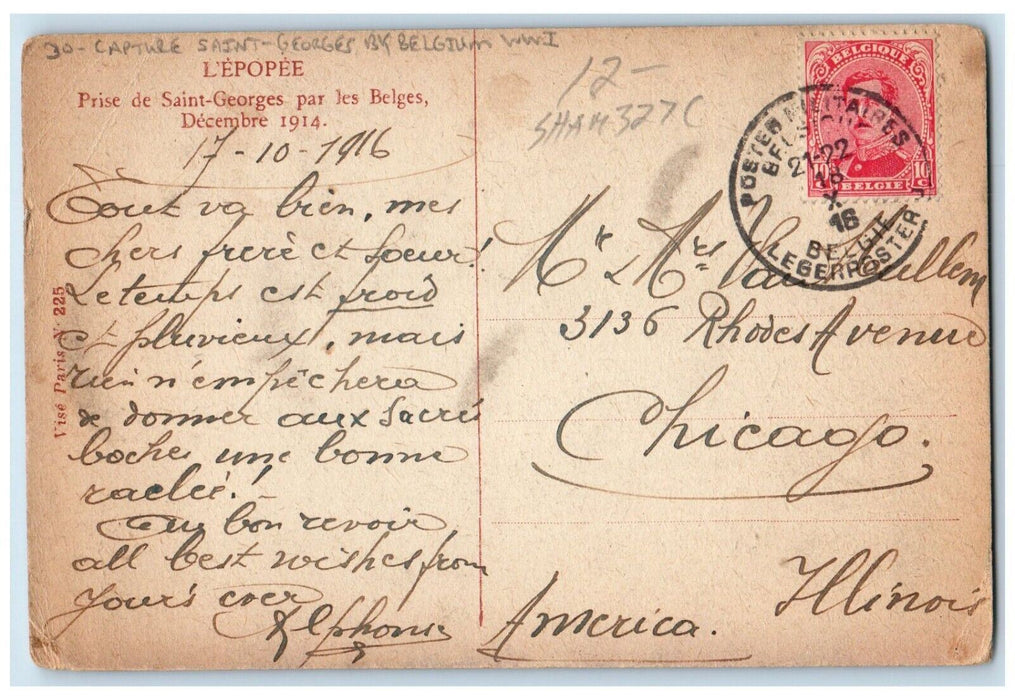 30 - CAPTURE SAINT-GEORGES BY BELGIUM WWI
L'ÉPOPÉE
Prise de Saint-Georges par les Belges,
Décembre 1914.
17-10-1916
Tout va bien, mes
chers frère et Soeur!
Le temps est froid
et pluvieux, mais
rien n'empêchera
de donner aux Sacré
boches une bonne
raclée!
Au bon revoir
all best wishes from
Yours ever
Alphonse
Visé Paris Nº 225
12-
SHAM327C
BELGIQUE
10 10
BELGIE
POSTES MILITAIRES
BELGIQUE
21-22
18
X
16
BELGIE
LEGERPOSTERIJ
Mr & Mrs Van
3136 Rhodes Avenue
Chicago.
Illinois
America.